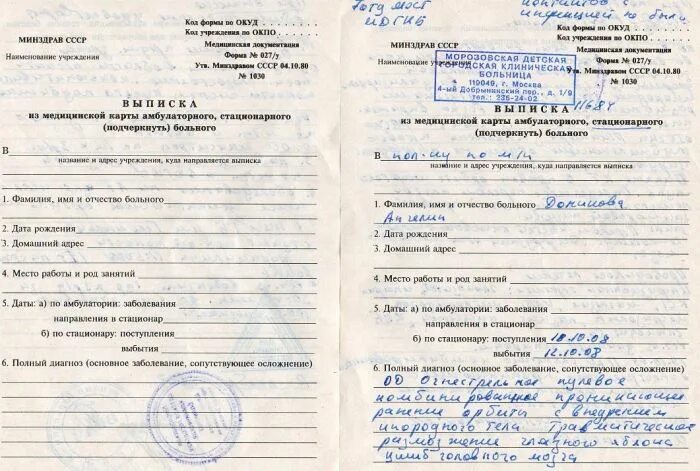 Код формы по ОКУД
Код учреждения по ОКПО
МИНЗДРАВ СССР
Медицинская документация
Форма № 027/у
Наименование учреждения
Утв. Минздравом СССР 04.10.80
№ 1030
ВЫПИСКА
из медицинской карты амбулаторного, стационарного
(подчеркнуть) больного
В
название и адрес учреждения, куда направляется выписка
1. Фамилия, имя и отчество больного
2. Дата рождения
3. Домашний адрес
4. Место работы и род занятий
5. Даты: а) по амбулатории: заболевания
направления в стационар
б) по стационару: поступления
выбытия
6. Полный диагноз (основное заболевание, сопутствующее осложнение)
контактов с
инфекцией не было
Код формы по ОКУД
Код учреждения по ОКПО
МИНЗДРАВ СССР
Медицинская документация
Форма № 027/у
Наименование учреждения
Утв. Минздравом СССР 04.10.80
№ 1030
МОРОЗОВСКАЯ ДЕТСКАЯ
ГОРОДСКАЯ КЛИНИЧЕСКАЯ
БОЛЬНИЦА
119049, г. Москва
4-ый Добрынинский пер., д. 1/9
тел.: 236-24-02
ВЫПИСКА
из медицинской карты амбулаторного, стационарного
(подчеркнуть) больного
В пол-ку по м/ж
название и адрес учреждения, куда направляется выписка
1. Фамилия, имя и отчество больного
2. Дата рождения
3. Домашний адрес
4. Место работы и род занятий
5. Даты: а) по амбулатории: заболевания
направления в стационар
б) по стационару: поступления 10.10.08
выбытия 12.10.08
6. Полный диагноз (основное заболевание, сопутствующее осложнение)
OD Огнестрельное пулевое
комбинированное проникающее
ранение орбиты с внедрением
инородного тела Травматическое
размозжение глазного яблока
ушиб головного мозга